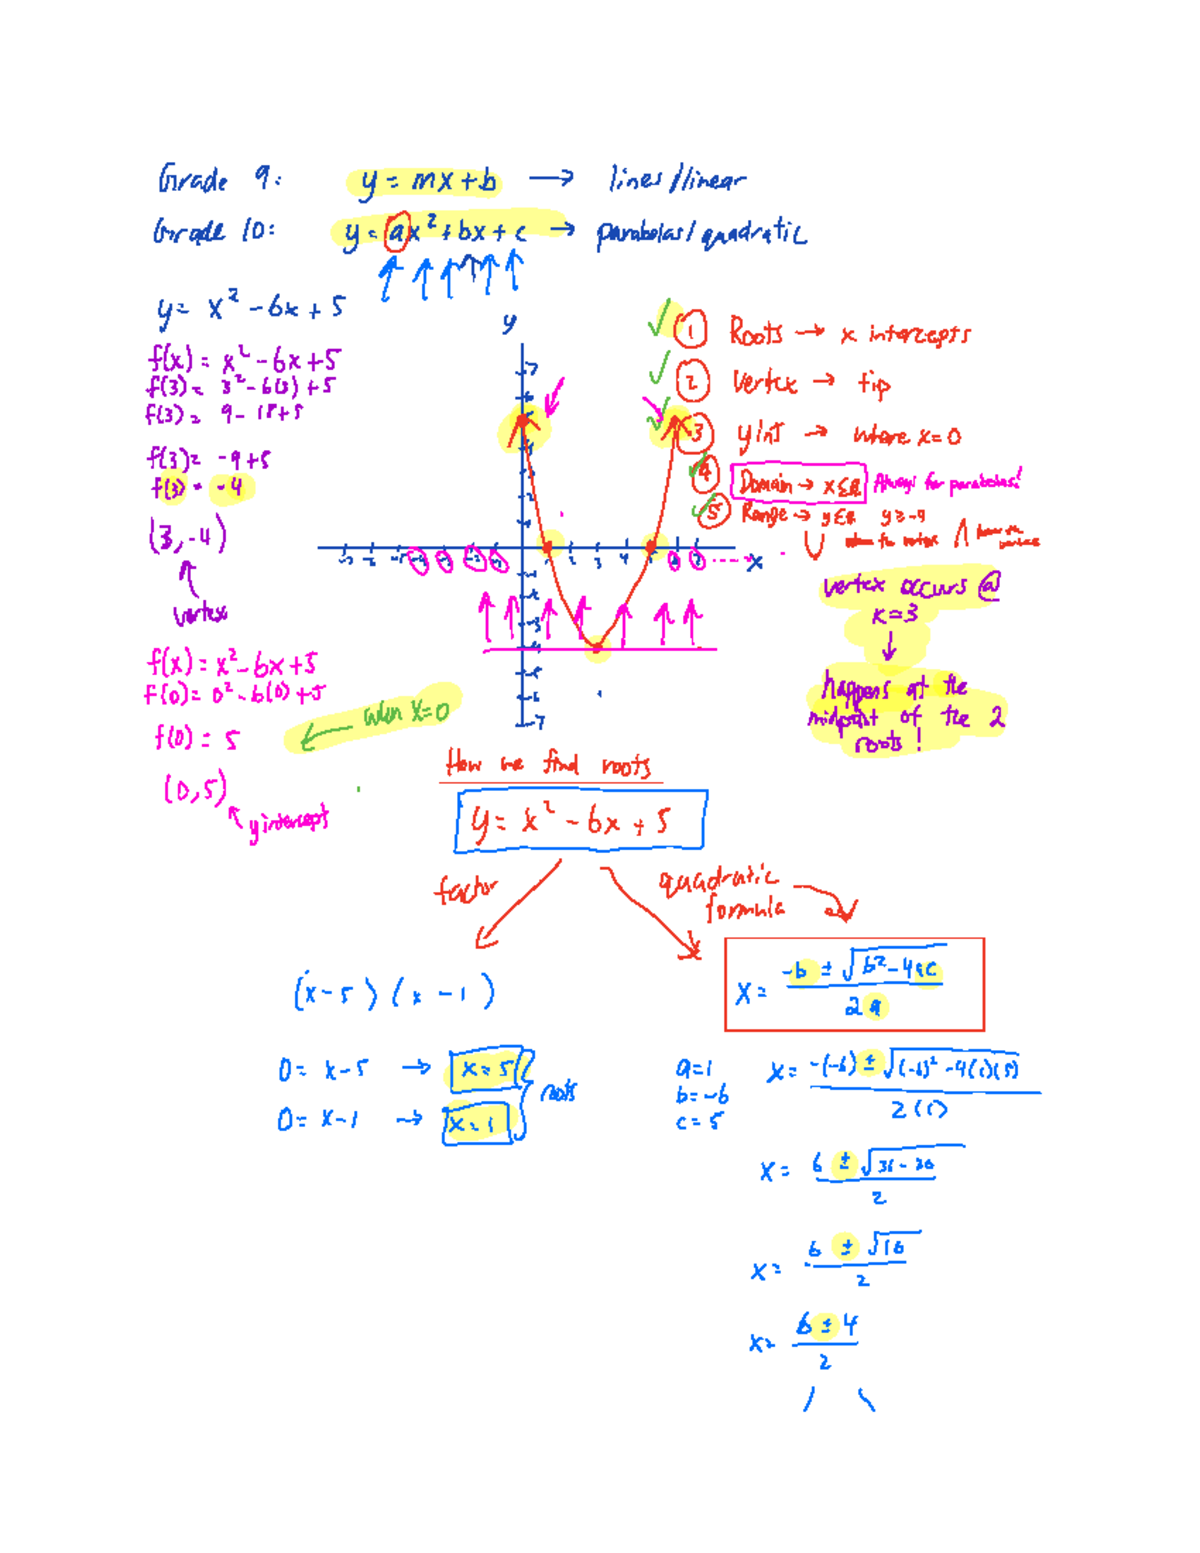 Grade 9: y = mx + b → lines/linear
Grade 10: y = ax² + bx + c → parabolas/quadratic
y = x² - 6x + 5
f(x) = x² - 6x + 5
f(3) = 3² - 6(3) + 5
f(3) = 9 - 18 + 5
f(3) = -9 + 5
f(3) = -4
(3, -4)
vertex
f(x) = x² - 6x + 5
f(0) = 0² - 6(0) + 5
f(0) = 5
when x = 0
(0, 5)
y intercept
y
x
① Roots → x intercepts
② vertex → tip
③ y int → where x = 0
④ Domain → x ∈ R Always for parabolas!
⑤ Range → y ∈ R y ≥ -4
vertex occurs @
x = 3
↓
happens at the
midpoint of the 2
roots!
How we find roots
y = x² - 6x + 5
factor
quadratic
formula
(x - 5)(x - 1)
0 = x - 5 → x = 5
0 = x - 1 → x = 1
roots
x = -b ± √b² - 4ac / 2a
a = 1
b = -6
c = 5
x = -(-6) ± √(-6)² - 4(1)(5) / 2(1)
x = 6 ± √36 - 20 / 2
x = 6 ± √16 / 2
x = 6 ± 4 / 2